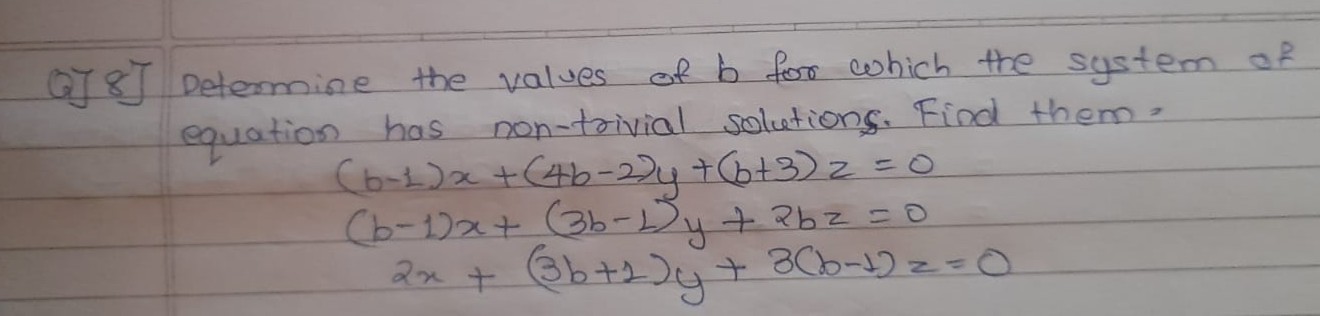 Q] 8] Determine the values of b for which the system of
equation has non-trivial solutions. Find them.
(b-1)x + (4b-2)y + (b+3)z = 0
(b-1)x + (3b-1)y + 2bz = 0
2x + (3b+1)y + 3(b-1)z = 0